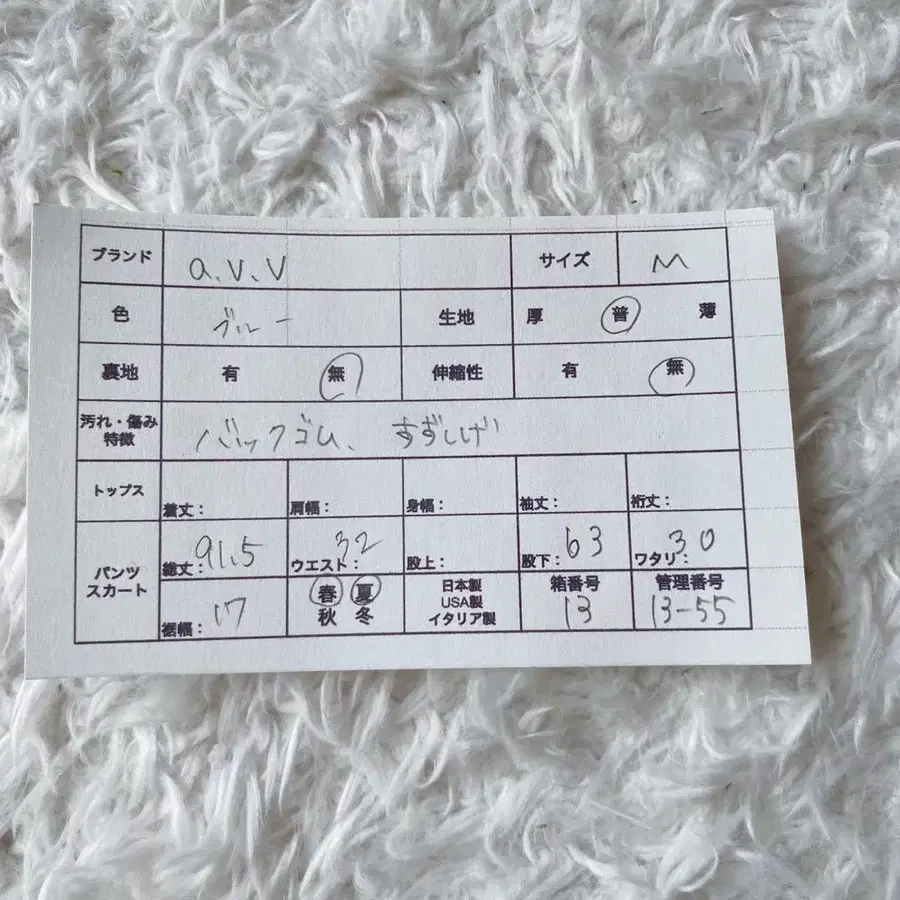 ブランド a.v.v サイズ M
色 ブルー 生地 厚 普 薄
裏地 有 無 伸縮性 有 無
汚れ・傷み
特徴 バックゴム、すずしげ
トップス 着丈： 肩幅： 身幅： 袖丈： 裄丈：
パンツ
スカート
総丈：91.5 ウエスト：32 股上： 股下：63 ワタリ：30
裾幅：17
春 夏
秋 冬
日本製
USA製
イタリア製
箱番号
13
管理番号
13-55